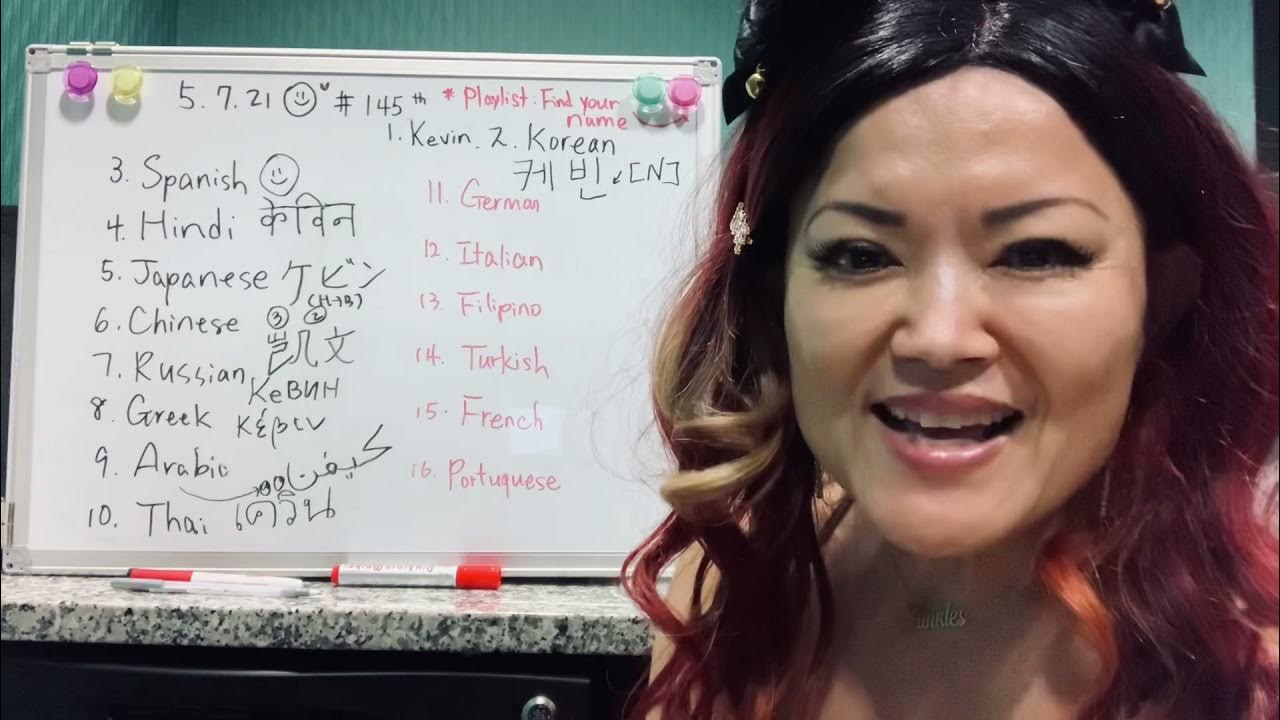 5.7.21 # 145th * Playlist: Find your name
1. Kevin. 2. Korean
케빈 [N]
3. Spanish
4. Hindi केविन
5. Japanese ケビン
(H→B)
6. Chinese ③ ②
凯文
7. Russian Кевин
8. Greek κέβιν
9. Arabic كيفن
10. Thai เควิน
11. German
12. Italian
13. Filipino
14. Turkish
15. French
16. Portuguese